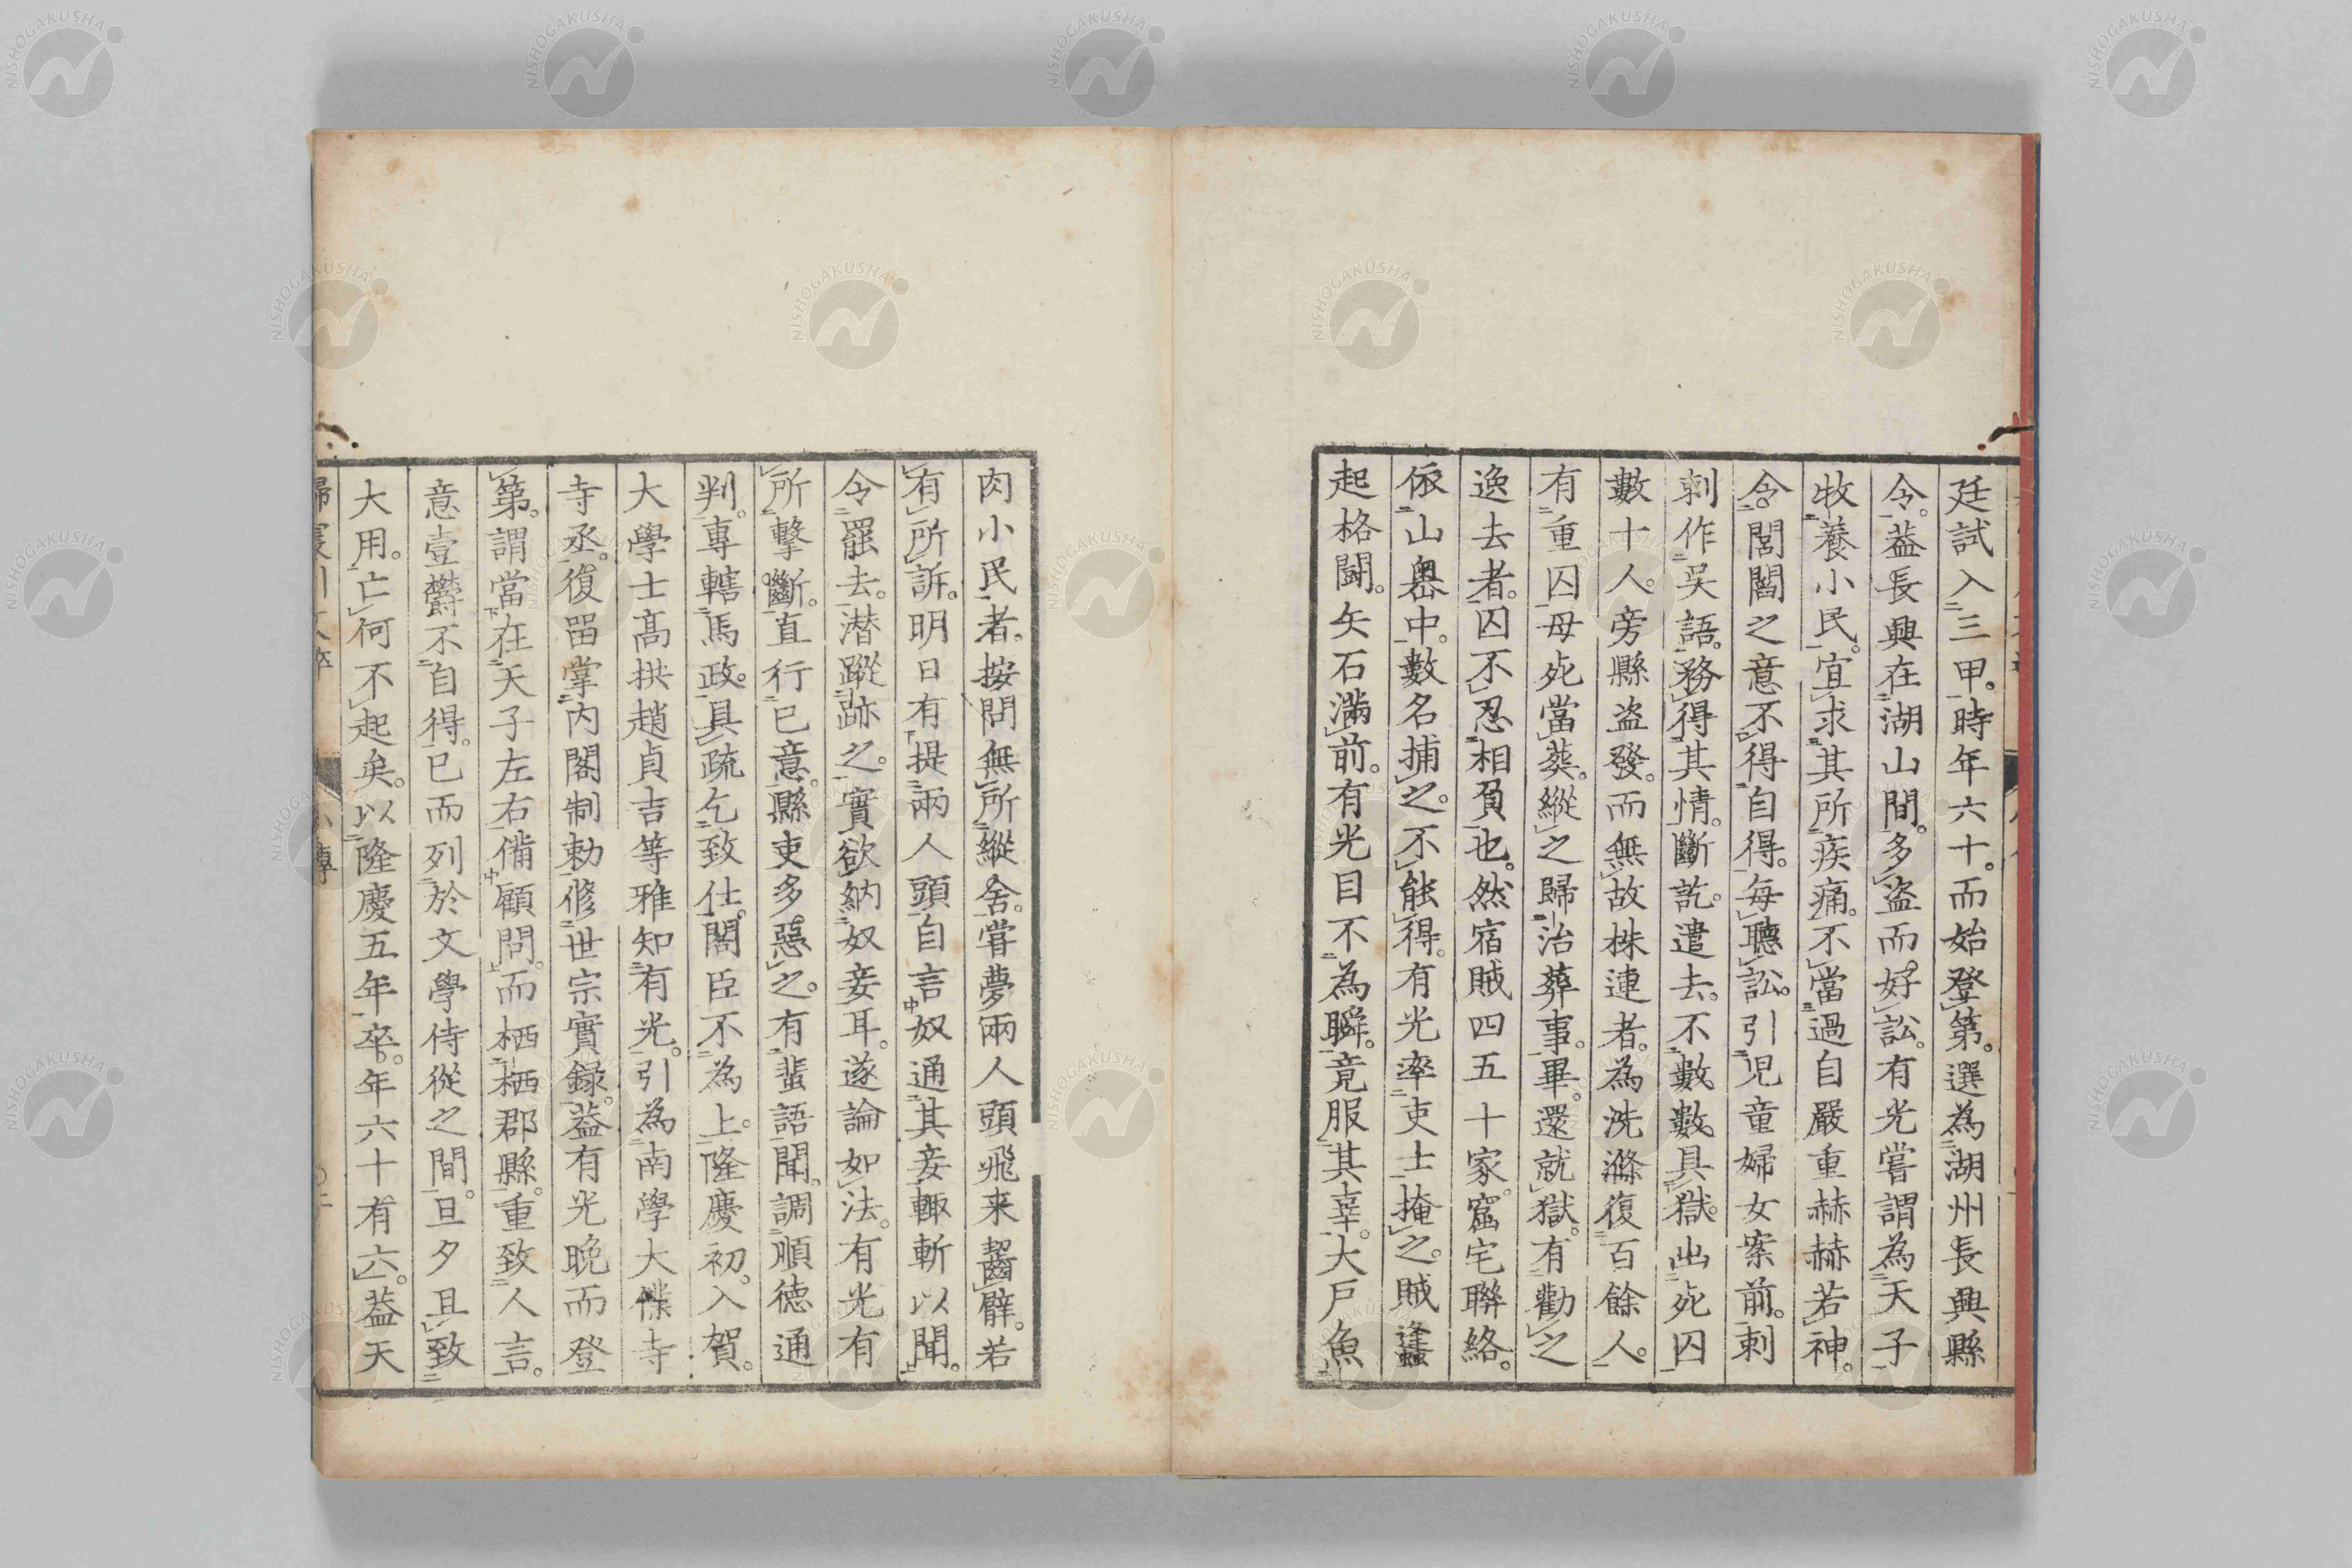 廷試入三甲。時年六十。而始登第。選為湖州長興縣
令。葢長興在湖山間。多盗而好訟。有光嘗謂為天子
牧養小民。宜求其所疾痛。不當過自嚴重赫赫若神。
令閭閻之意不得自得。毎聽訟。引児童婦女案前。刺
刺作吴語。務得其情。斷訖。遣去。不數數具獄。出死囚
數十人。旁縣盗發。而無故株連者。為洗滌復百餘人。
有重囚母死當葬。縱之歸治葬事。畢。還就獄。有勸之
逸去者。囚不忍相負也。然宿賊四五十家。窟宅聯絡。
依山嶴中。數名捕之。不能得。有光率吏士掩之。賊逢
起格鬪。矢石滿前。有光目不為瞬。竟服其辜。大戸魚
肉小民者。按問無所縱舍。嘗夢兩人頭飛来齧臂。若
有所訴。明日有提兩人頭自言奴通其妾輙斬以聞。
令罷去。潜蹤跡之。實欲納奴妾耳。遂論如法。有光有
所擊斷。直行已意。縣吏多惡之。有蜚語聞。調順徳通
判。專轄馬政。具疏乞致仕。閣臣不為上。隆慶初。入賀。
大學士髙拱趙貞吉等雅知有光。引為南學大僕寺
寺丞。復畱掌内閣制勅修世宗實録。葢有光晩而登
第。謂當在天子左右備顧問。而栖栖郡縣。重致人言。
意壹鬱不自得。已而列於文學侍從之間。旦夕且致
大用。亡何不起矣。以隆慶五年卒。年六十有六。葢天
NISHOGAKUSHA